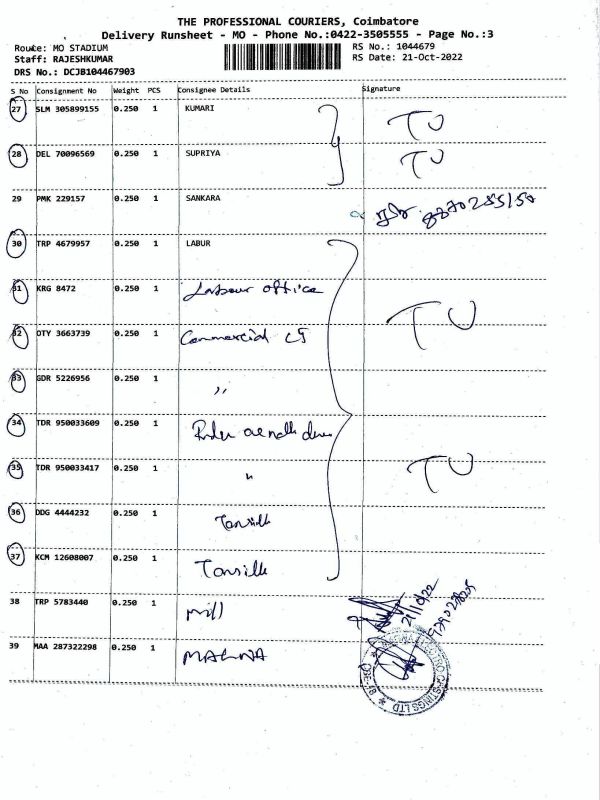 THE PROFESSIONAL COURIERS, Coimbatore
Delivery Runsheet - MO - Phone No.:0422-3505555 - Page No.:3
Route: MO STADIUM
Staff: RAJESHKUMAR
DRS No.: DCJB104467903
RS No.: 1044679
RS Date: 21-Oct-2022
S No Consignment No Weight PCS Consignee Details Signature
27 SLM 305899155 0.250 1 KUMARI TU
28 DEL 70096569 0.250 1 SUPRIYA TU
29 PMK 229157 0.250 1 SANKARA
30 TRP 4679957 0.250 1 LABUR
31 KRG 8472 0.250 1 Labour office TU
32 OTY 3663739 0.250 1 Commercial
33 GDR 5226956 0.250 1 "
34 TDR 950033609 0.250 1
35 TDR 950033417 0.250 1 " TU
36 DDG 4444232 0.250 1
37 KCM 12608007 0.250 1
38 TRP 5783440 0.250 1 Mill 21/10/22
39 MAA 287322298 0.250 1 MAGNA
MAGNA ELECTRO CASTINGS LTD